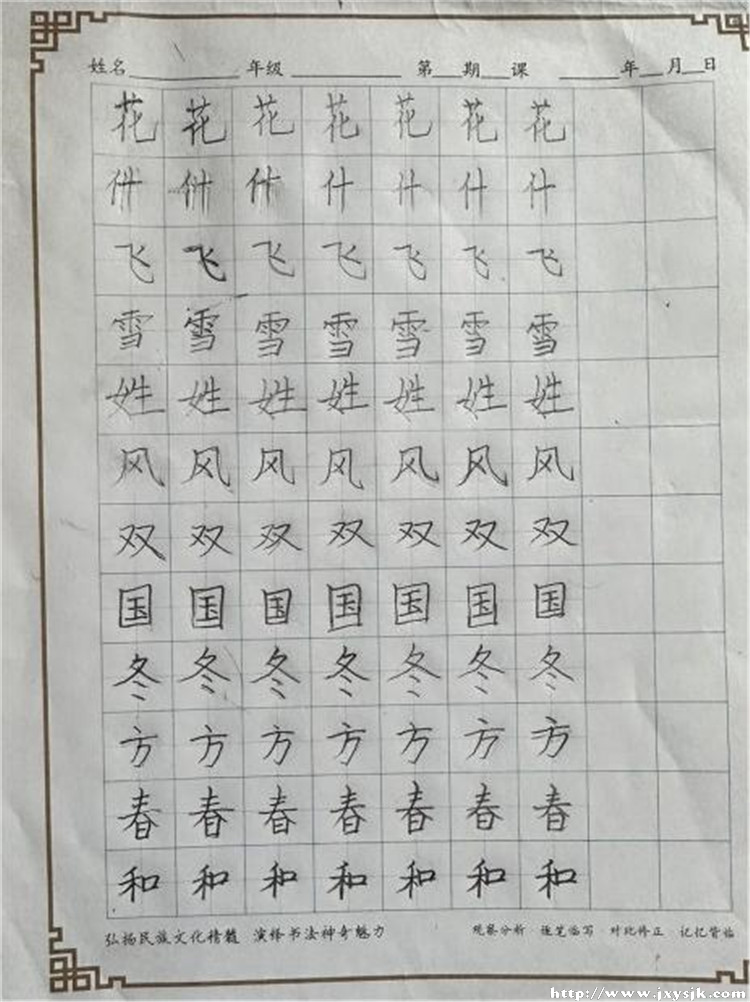 姓名 年级 第 期 课 年 月 日
花 花 花 花 花 花 花
什 什 什 什 什 什 什
飞 飞 飞 飞 飞 飞 飞
雪 雪 雪 雪 雪 雪 雪
姓 姓 姓 姓 姓 姓 姓
风 风 风 风 风 风 风
双 双 双 双 双 双 双
国 国 国 国 国 国 国
冬 冬 冬 冬 冬 冬 冬
方 方 方 方 方 方 方
春 春 春 春 春 春 春
和 和 和 和 和 和 和
弘扬民族文化精髓 演绎书法神奇魅力 观察分析 逐笔临写 对比修正 记忆背临
http://www.jxysjk.com